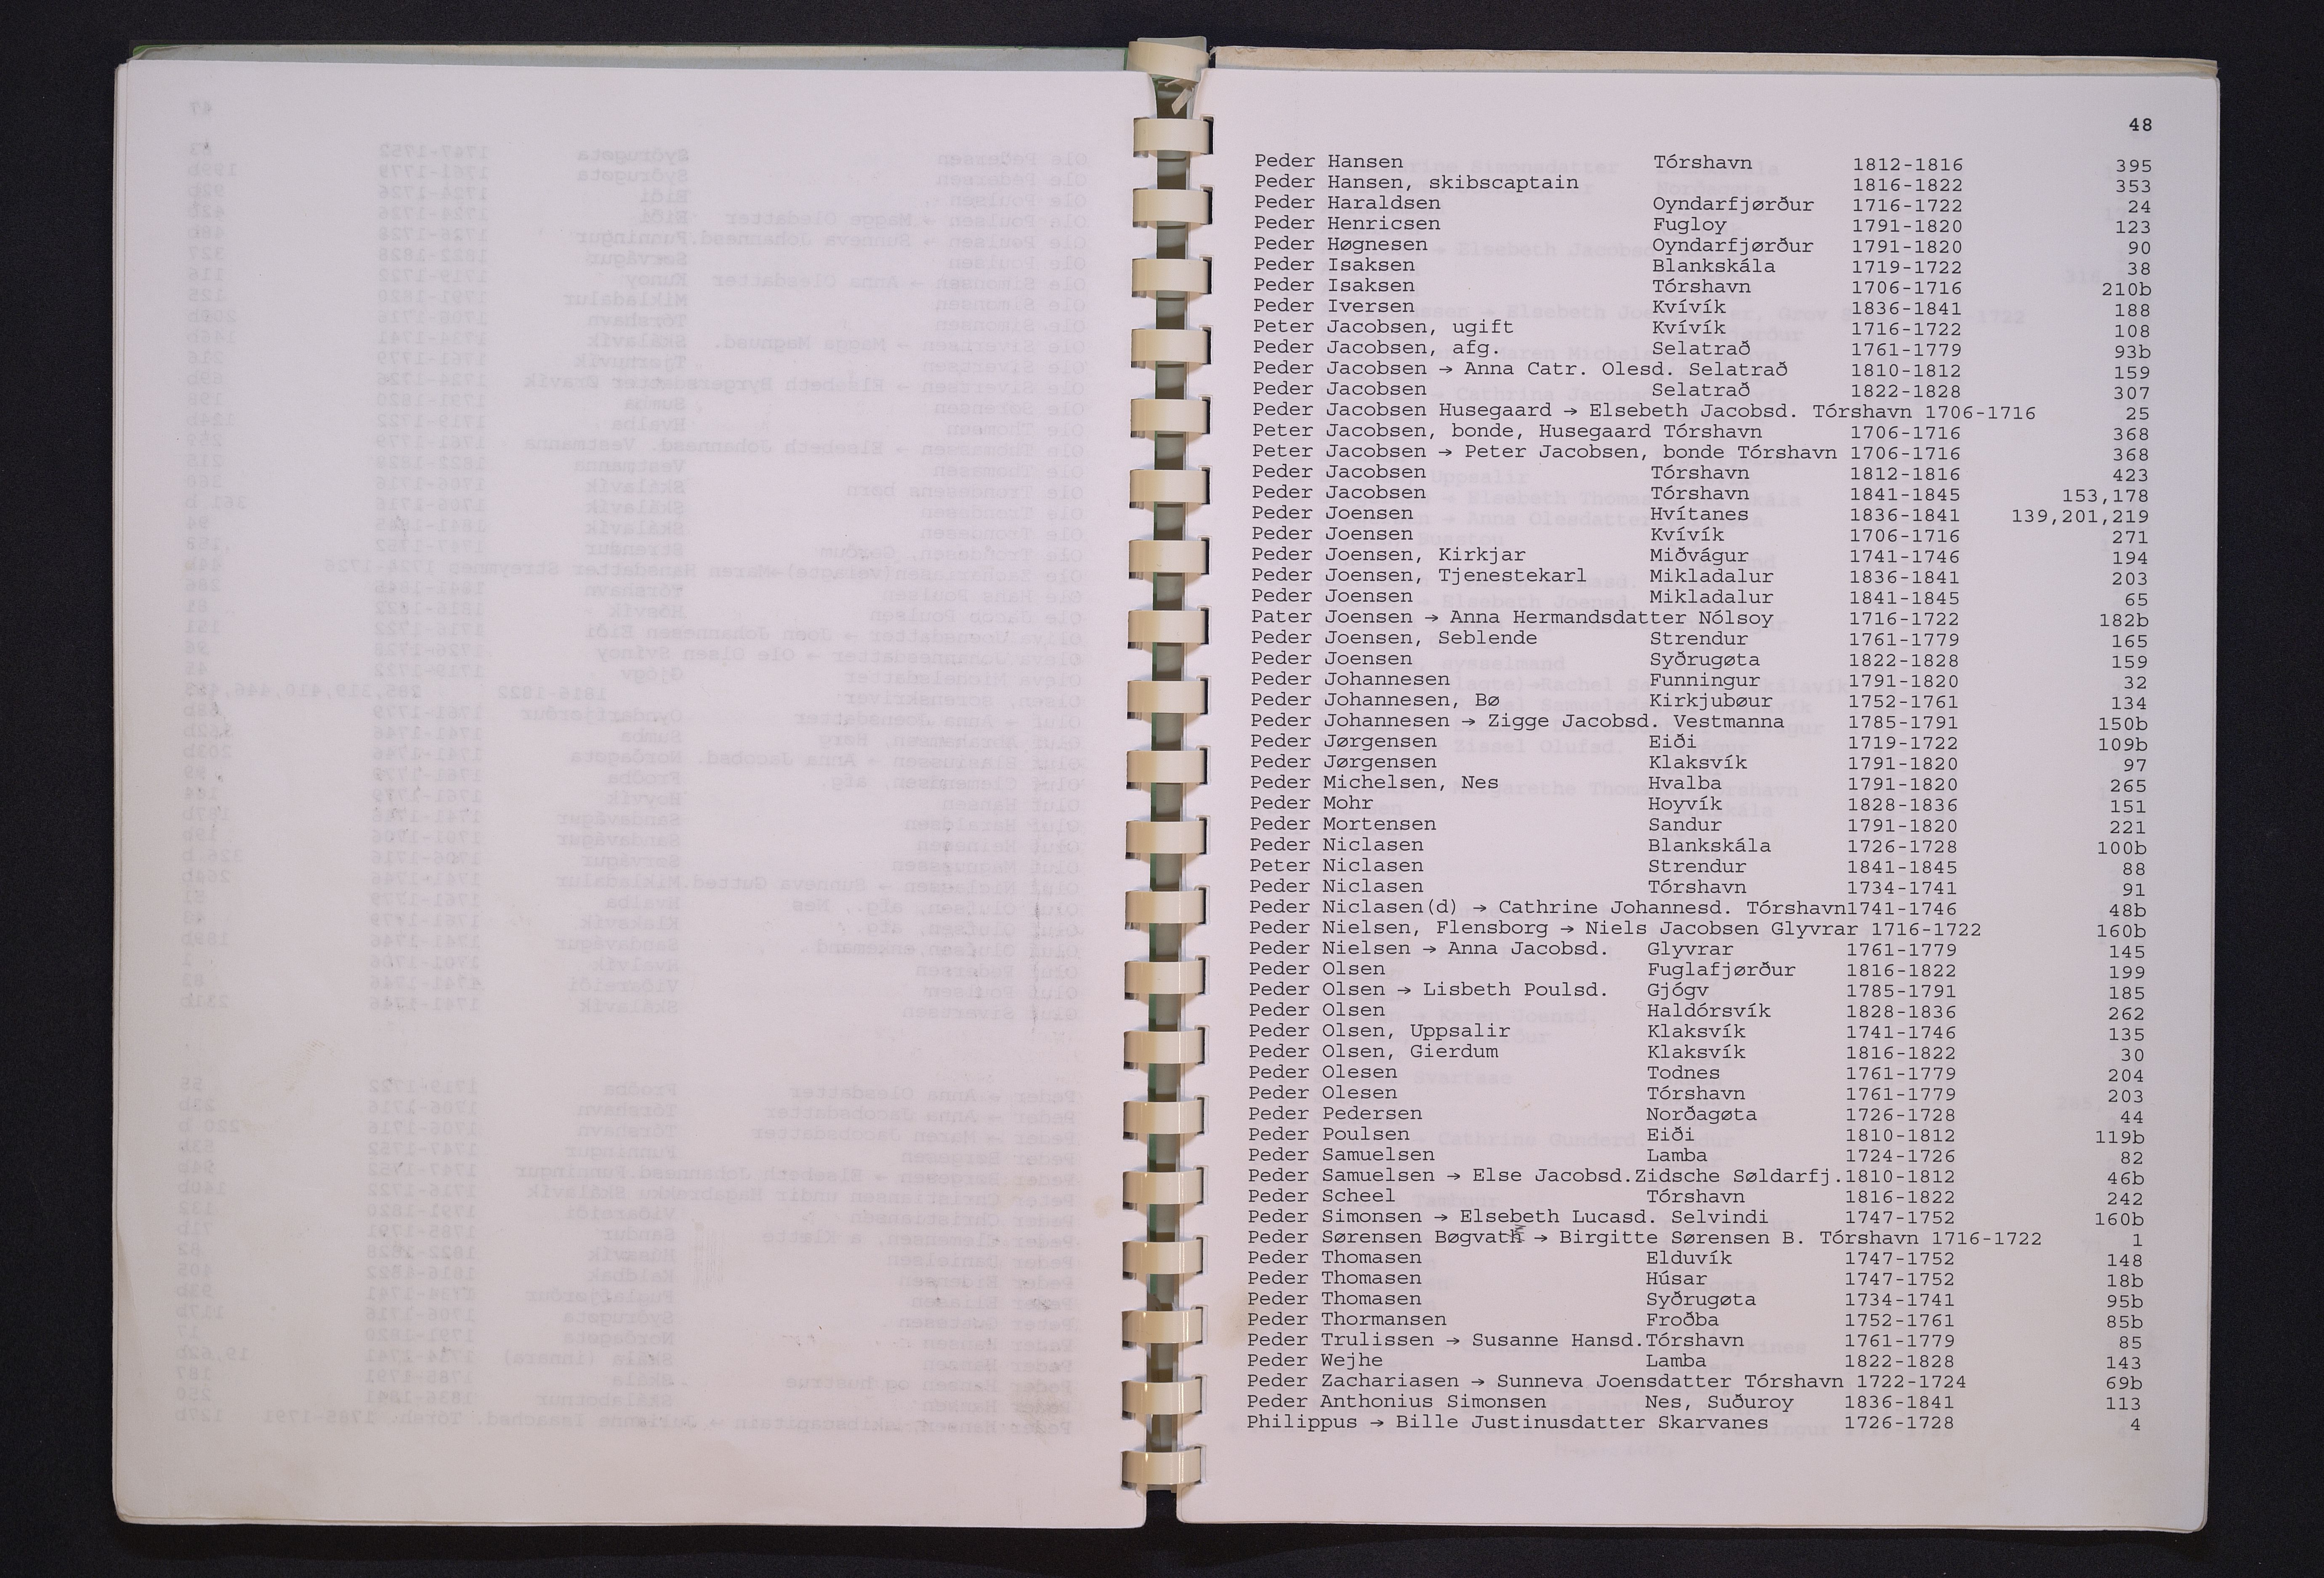 48
Peder Hansen Tórshavn 1812-1816 395
Peder Hansen, skibscaptain 1816-1822 353
Peder Haraldsen Oyndarfjørður 1716-1722 24
Peder Henricsen Fugloy 1791-1820 123
Peder Høgnesen Oyndarfjørður 1791-1820 90
Peder Isaksen Blankskála 1719-1722 38
Peder Isaksen Tórshavn 1706-1716 210b
Peder Iversen Kvívík 1836-1841 188
Peter Jacobsen, ugift Kvívík 1716-1722 108
Peder Jacobsen, afg. Selatrað 1761-1779 93b
Peder Jacobsen → Anna Catr. Olesd. Selatrað 1810-1812 159
Peder Jacobsen Selatrað 1822-1828 307
Peder Jacobsen Husegaard → Elsebeth Jacobsd. Tórshavn 1706-1716 25
Peter Jacobsen, bonde, Husegaard Tórshavn 1706-1716 368
Peter Jacobsen → Peter Jacobsen, bonde Tórshavn 1706-1716 368
Peder Jacobsen Tórshavn 1812-1816 423
Peder Jacobsen Tórshavn 1841-1845 153,178
Peder Joensen Hvítanes 1836-1841 139,201,219
Peder Joensen Kvívík 1706-1716 271
Peder Joensen, Kirkjar Miðvágur 1741-1746 194
Peder Joensen, Tjenestekarl Mikladalur 1836-1841 203
Peder Joensen Mikladalur 1841-1845 65
Pater Joensen → Anna Hermandsdatter Nólsoy 1716-1722 182b
Peder Joensen, Seblende Strendur 1761-1779 165
Peder Joensen Syðrugøta 1822-1828 159
Peder Johannesen Funningur 1791-1820 32
Peder Johannesen, Bø Kirkjubøur 1752-1761 134
Peder Johannesen → Zigge Jacobsd. Vestmanna 1785-1791 150b
Peder Jørgensen Eiði 1719-1722 109b
Peder Jørgensen Klaksvík 1791-1820 97
Peder Michelsen, Nes Hvalba 1791-1820 265
Peder Mohr Hoyvík 1828-1836 151
Peder Mortensen Sandur 1791-1820 221
Peder Niclasen Blankskála 1726-1728 100b
Peter Niclasen Strendur 1841-1845 88
Peder Niclasen Tórshavn 1734-1741 91
Peder Niclasen(d) → Cathrine Johannesd. Tórshavn1741-1746 48b
Peder Nielsen, Flensborg → Niels Jacobsen Glyvrar 1716-1722 160b
Peder Nielsen → Anna Jacobsd. Glyvrar 1761-1779 145
Peder Olsen Fuglafjørður 1816-1822 199
Peder Olsen → Lisbeth Poulsd. Gjógv 1785-1791 185
Peder Olsen Haldórsvík 1828-1836 262
Peder Olsen, Uppsalir Klaksvík 1741-1746 135
Peder Olsen, Gierdum Klaksvík 1816-1822 30
Peder Olesen Todnes 1761-1779 204
Peder Olesen Tórshavn 1761-1779 203
Peder Pedersen Norðagøta 1726-1728 44
Peder Poulsen Eiði 1810-1812 119b
Peder Samuelsen Lamba 1724-1726 82
Peder Samuelsen → Else Jacobsd.Zidsche Søldarfj.1810-1812 46b
Peder Scheel Tórshavn 1816-1822 242
Peder Simonsen → Elsebeth Lucasd. Selvindi 1747-1752 160b
Peder Sørensen Bøgvath → Birgitte Sørensen B. Tórshavn 1716-1722 1
Peder Thomasen Elduvík 1747-1752 148
Peder Thomasen Húsar 1747-1752 18b
Peder Thomasen Syðrugøta 1734-1741 95b
Peder Thormansen Froðba 1752-1761 85b
Peder Trulissen → Susanne Hansd.Tórshavn 1761-1779 85
Peder Wejhe Lamba 1822-1828 143
Peder Zachariasen → Sunneva Joensdatter Tórshavn 1722-1724 69b
Peder Anthonius Simonsen Nes, Suðuroy 1836-1841 113
Philippus → Bille Justinusdatter Skarvanes 1726-1728 4